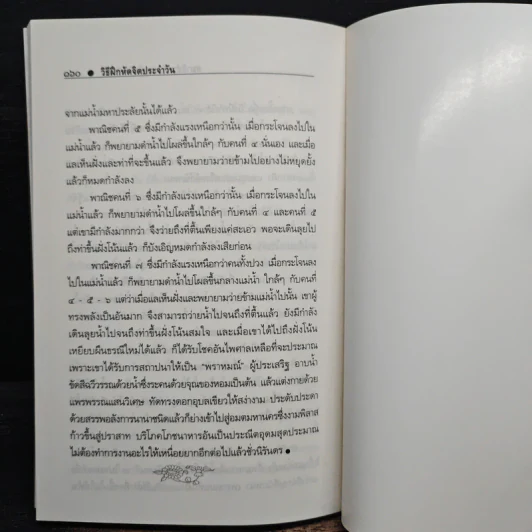 ๑๖๐ ● วิธีฝึกหัดจิตประจำวัน
จากแม่น้ำมหาประลัยนั้นได้แล้ว
พาณิชคนที่ ๕ ซึ่งมีกำลังแรงเหนือกว่านั้น เมื่อกระโจนลงไปใน
แม่น้ำแล้ว ก็พยายามดำน้ำไปโผล่ขึ้นใกล้ๆ กับคนที่ ๔ นั่นเอง และเมื่อ
แลเห็นฝั่งและท่าที่จะขึ้นแล้ว จึงพยายามว่ายข้ามไปอย่างไม่หยุดยั้ง
แล้วก็หมดกำลังลง
พาณิชคนที่ ๖ ซึ่งมีกำลังแรงเหนือกว่านั้น เมื่อกระโจนลงไปใน
แม่น้ำแล้ว ก็พยายามดำน้ำไปโผล่ขึ้นใกล้ๆ กับคนที่ ๔ และคนที่ ๕
แต่เขามีกำลังมากกว่า จึงว่ายถึงที่ตื้นเพียงแค่สะเอว พอจะเดินลุยไป
ถึงท่าขึ้นฝั่งโน้นแล้ว ก็บังเอิญหมดกำลังลงเสียก่อน
พาณิชคนที่ ๗ ซึ่งมีกำลังแรงเหนือกว่าคนทั้งปวง เมื่อกระโจนลง
ไปในแม่น้ำแล้ว ก็พยายามดำน้ำไปโผล่ขึ้นกลางแม่น้ำ ใกล้ๆ กับคนที่
๔ - ๕ - ๖ แต่ว่าเมื่อแลเห็นฝั่งและพยายามว่ายข้ามแม่น้ำไปนั้น เขาผู้
ทรงพลังเป็นอันมาก จึงสามารถว่ายน้ำไปจนถึงที่ตื้นแล้ว ยังมีกำลัง
เดินลุยน้ำไปจนถึงท่าขึ้นฝั่งโน้นสมใจ และเมื่อเขาได้ไปถึงฝั่งโน้น
เหยียบผืนธรณีใหม่ได้แล้ว ก็ได้รับโชคอันไพศาลเหลือที่จะประมาณ
เพราะเขาได้รับการสถาปนาให้เป็น "พราหมณ์" ผู้ประเสริฐ อาบน้ำ
ขัดสีฉวีวรรณด้วยน้ำซึ่งระคนด้วยจุณของหอมเป็นต้น แล้วแต่งกายด้วย
แพรพรรณแสนวิเศษ ทัดทรงดอกอุบลเขียวให้สง่างาม ประดับประดา
ด้วยสรรพอลังการนานาชนิดแล้วก็ย่างเข้าไปสู่อมตมหานครซึ่งงามพิลาส
ก้าวขึ้นสู่ปราสาท บริโภคโภชนาหารอันเป็นประณีตอุดมสุดประมาณ
ไม่ต้องทำการงานอะไรให้เหนื่อยยากอีกต่อไปแล้วชั่วนิรันดร ●